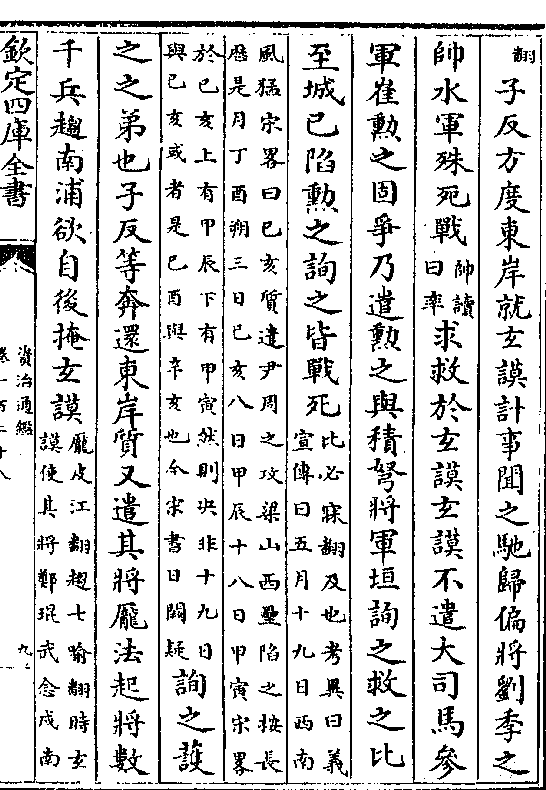 翻子反方度東岸就𤣥謨計事聞之馳歸偏將劉季之
帥水軍殊死戰帥讀曰率求救於𤣥謨𤣥謨不遣大司馬參
軍崔勲之固爭乃遣勲之與積弩將軍垣詢之救之比
至城已陷勲之詢之皆戰死比必寐翻及也考異曰義宣傳曰五月十九日西南
風猛宋畧曰己亥質遣尹周之攻梁山西壘陷之按長厯是月丁酉朔三日己亥八日甲辰十八日甲寅宋畧
於己亥上有甲辰下有甲寅然則决非十九日與己亥或者是己酉與辛亥也今宋書日闕疑詢之䕶
之之弟也子反等奔還東岸質又遣其將龎法起將數
千兵趨南浦欲自後掩𤣥謨龎皮江翻趨七喻翻時𤣥謨使其將鄭琨武念戍南
欽定四庫全書
資治通鑑
卷一百二十八
九